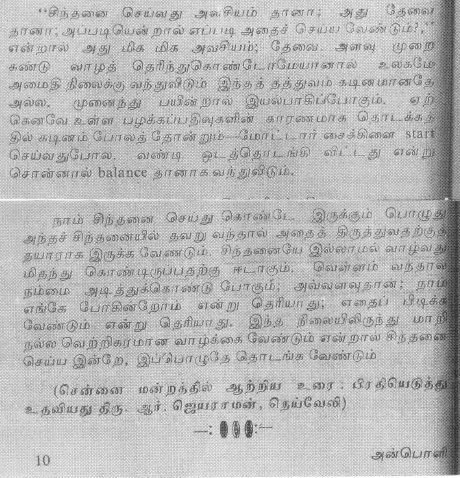 “சிந்தனை செய்வது அவசியம் தானா; அது தேவை
தானா; அப்படியென்றால் எப்படி அதைச் செய்ய வேண்டும்?,”
என்றால் அது மிக மிக அவசியம்; தேவை. அளவு முறை
கண்டு வாழத் தெரிந்துகொண்டோமேயானால் உலகமே
அமைதி நிலைக்கு வந்துவிடும் இந்தத் தத்துவம் கடினமானதே
அல்ல. முனைந்து பயின்றால் இயல்பாகிப்போகும். ஏற்
கெனவே உள்ள பழக்கப்பதிவுகளின் காரணமாக தொடக்கத்
தில் கடினம் போலத் தோன்றும்—மோட்டார் சைக்கிளை start
செய்வதுபோல. வண்டி ஓடத்தொடங்கி விட்டது என்று
சொன்னால் balance தானாக வந்துவிடும்.
நாம் சிந்தனை செய்து கொண்டே இருக்கும் பொழுது
அந்தச் சிந்தனையில் தவறு வந்தால் அதைத் திருத்துவதற்குத்
தயாராக இருக்க வேண்டும். சிந்தனையே இல்லாமல் வாழ்வது
மிதந்து கொண்டிருப்பதற்கு ஈடாகும். வெள்ளம் வந்தால்
நம்மை அடித்துக்கொண்டு போகும்; அவ்வளவுதான்; நாம்
எங்கே போகின்றோம் என்று தெரியாது; எதைப் பிடிக்க
வேண்டும் என்று தெரியாது. இந்த நிலையிலிருந்து மாறி
நல்ல வெற்றிகரமான வாழ்க்கை வேண்டும் என்றால் சிந்தனை
செய்ய இன்றே, இப்பொழுதே தொடங்க வேண்டும்
(சென்னை மன்றத்தில் ஆற்றிய உரை : பிரதியெடுத்து
உதவியது திரு. ஆர். ஜெயராமன், நெய்வேலி)
10 அன்பொளி